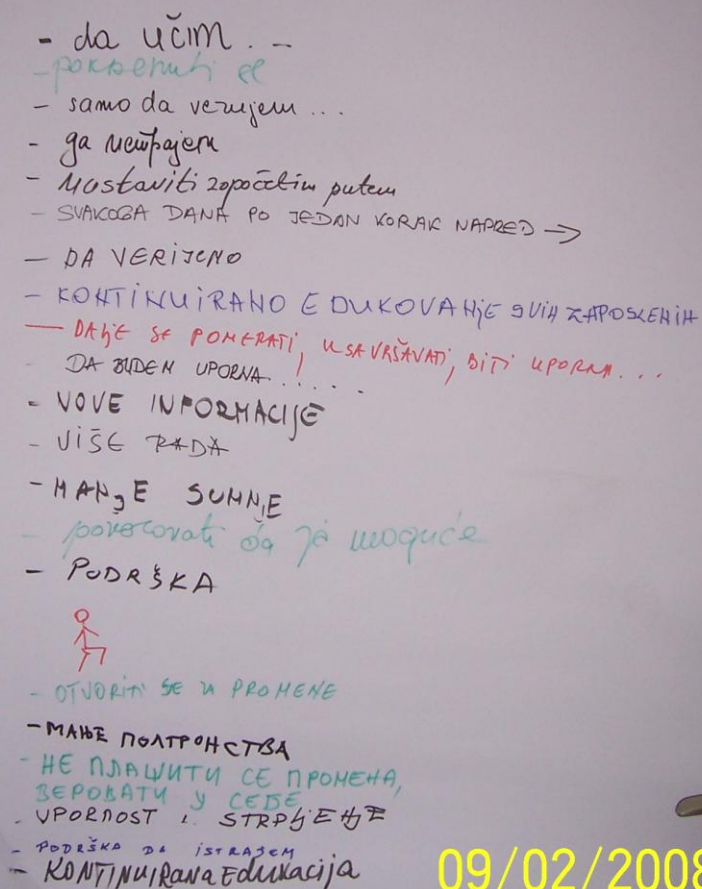 - da učim . -
- pokrenuti se
- samo da verujem ...
- да истрајем
- Nastaviti započetim putem
- SVAKOGA DANA PO JEDAN KORAK NAPRED →
- DA VERUJEMO
- KONTINUIRANO EDUKOVANJE SVIH ZAPOSLENIH
- DALJE SE POMERATI, USAVRŠAVATI, BITI UPORNA...
- DA BUDEM UPORNA ! .....
- NOVE INFORMACIJE
- VIŠE RADA
- MANJE SUMNJE
- poverovati da je moguće
- PODRŠKA
- OTVORITI SE ZA PROMENE
- МАЊЕ ПОЛТРОНСТВА
- НЕ ПЛАШИТИ СЕ ПРОМЕНА,
ВЕРОВАТИ У СЕБЕ
- UPORNOST I STRPLJENJE
- PODRŠKA DA ISTRAJEM
- KONTINUIRANA EDUKACIJA
09/02/2008